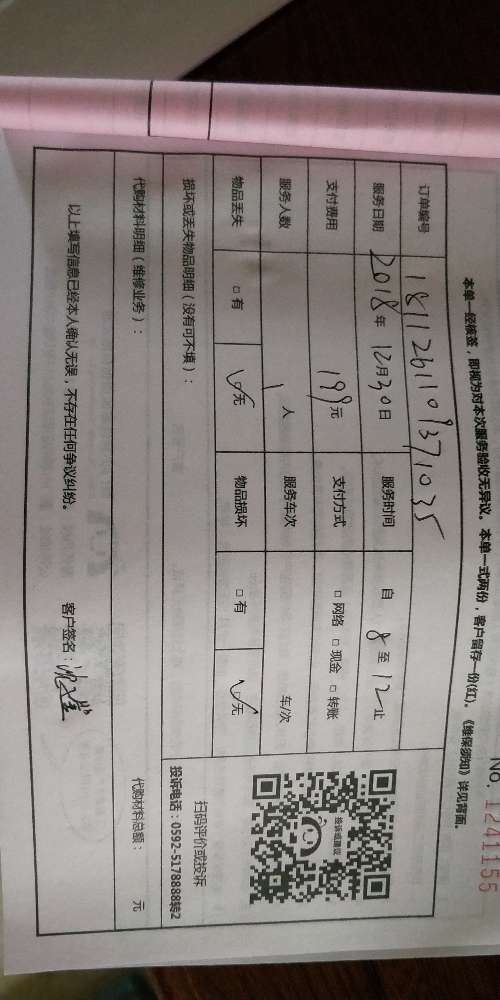 No. 1241155
本单一经核签，即视为对本次服务验收无异议。本单一式两份，客户留存一份(红)。《维保须知》详见背面。
订单编号 1811261109371035
服务日期 2018年 12月30日 服务时间 自 8 至 12 止
支付费用 199元 支付方式 □ 网络 □ 现金 □ 转账
服务人数 1 人 服务车次 车/次
物品丢失 □ 有 ☑无 物品损坏 □ 有 ☑无
投诉或建议
扫码评价或投诉
投诉电话：0592-5178888转2
损坏或丢失物品明细（没有可不填）：
代购材料明细（维修业务）： 代购材料总额： 元
以上填写信息已经本人确认无误，不存在任何争议纠纷。 客户签名：